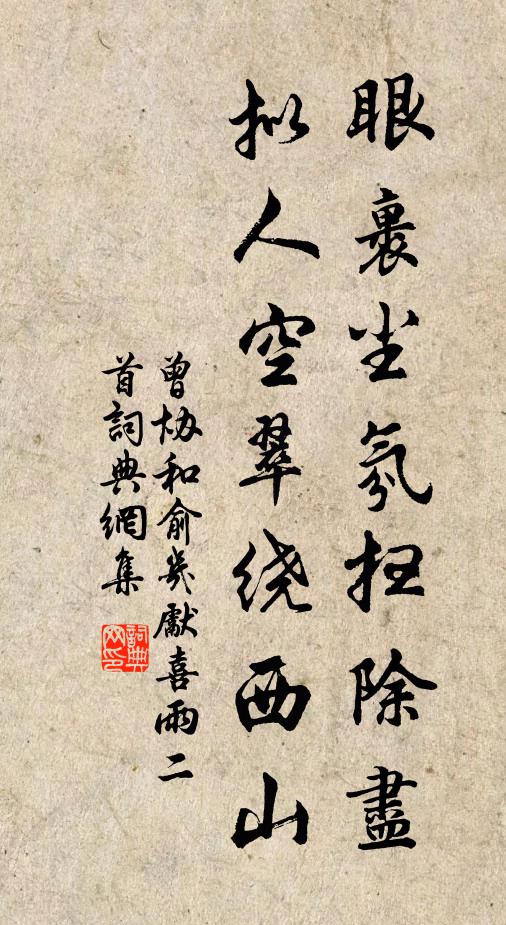 眼裏尘氛扫除盡
拟人空翠绕西山
曾协和俞几獻喜雨二
首詞典網集
詞典网印